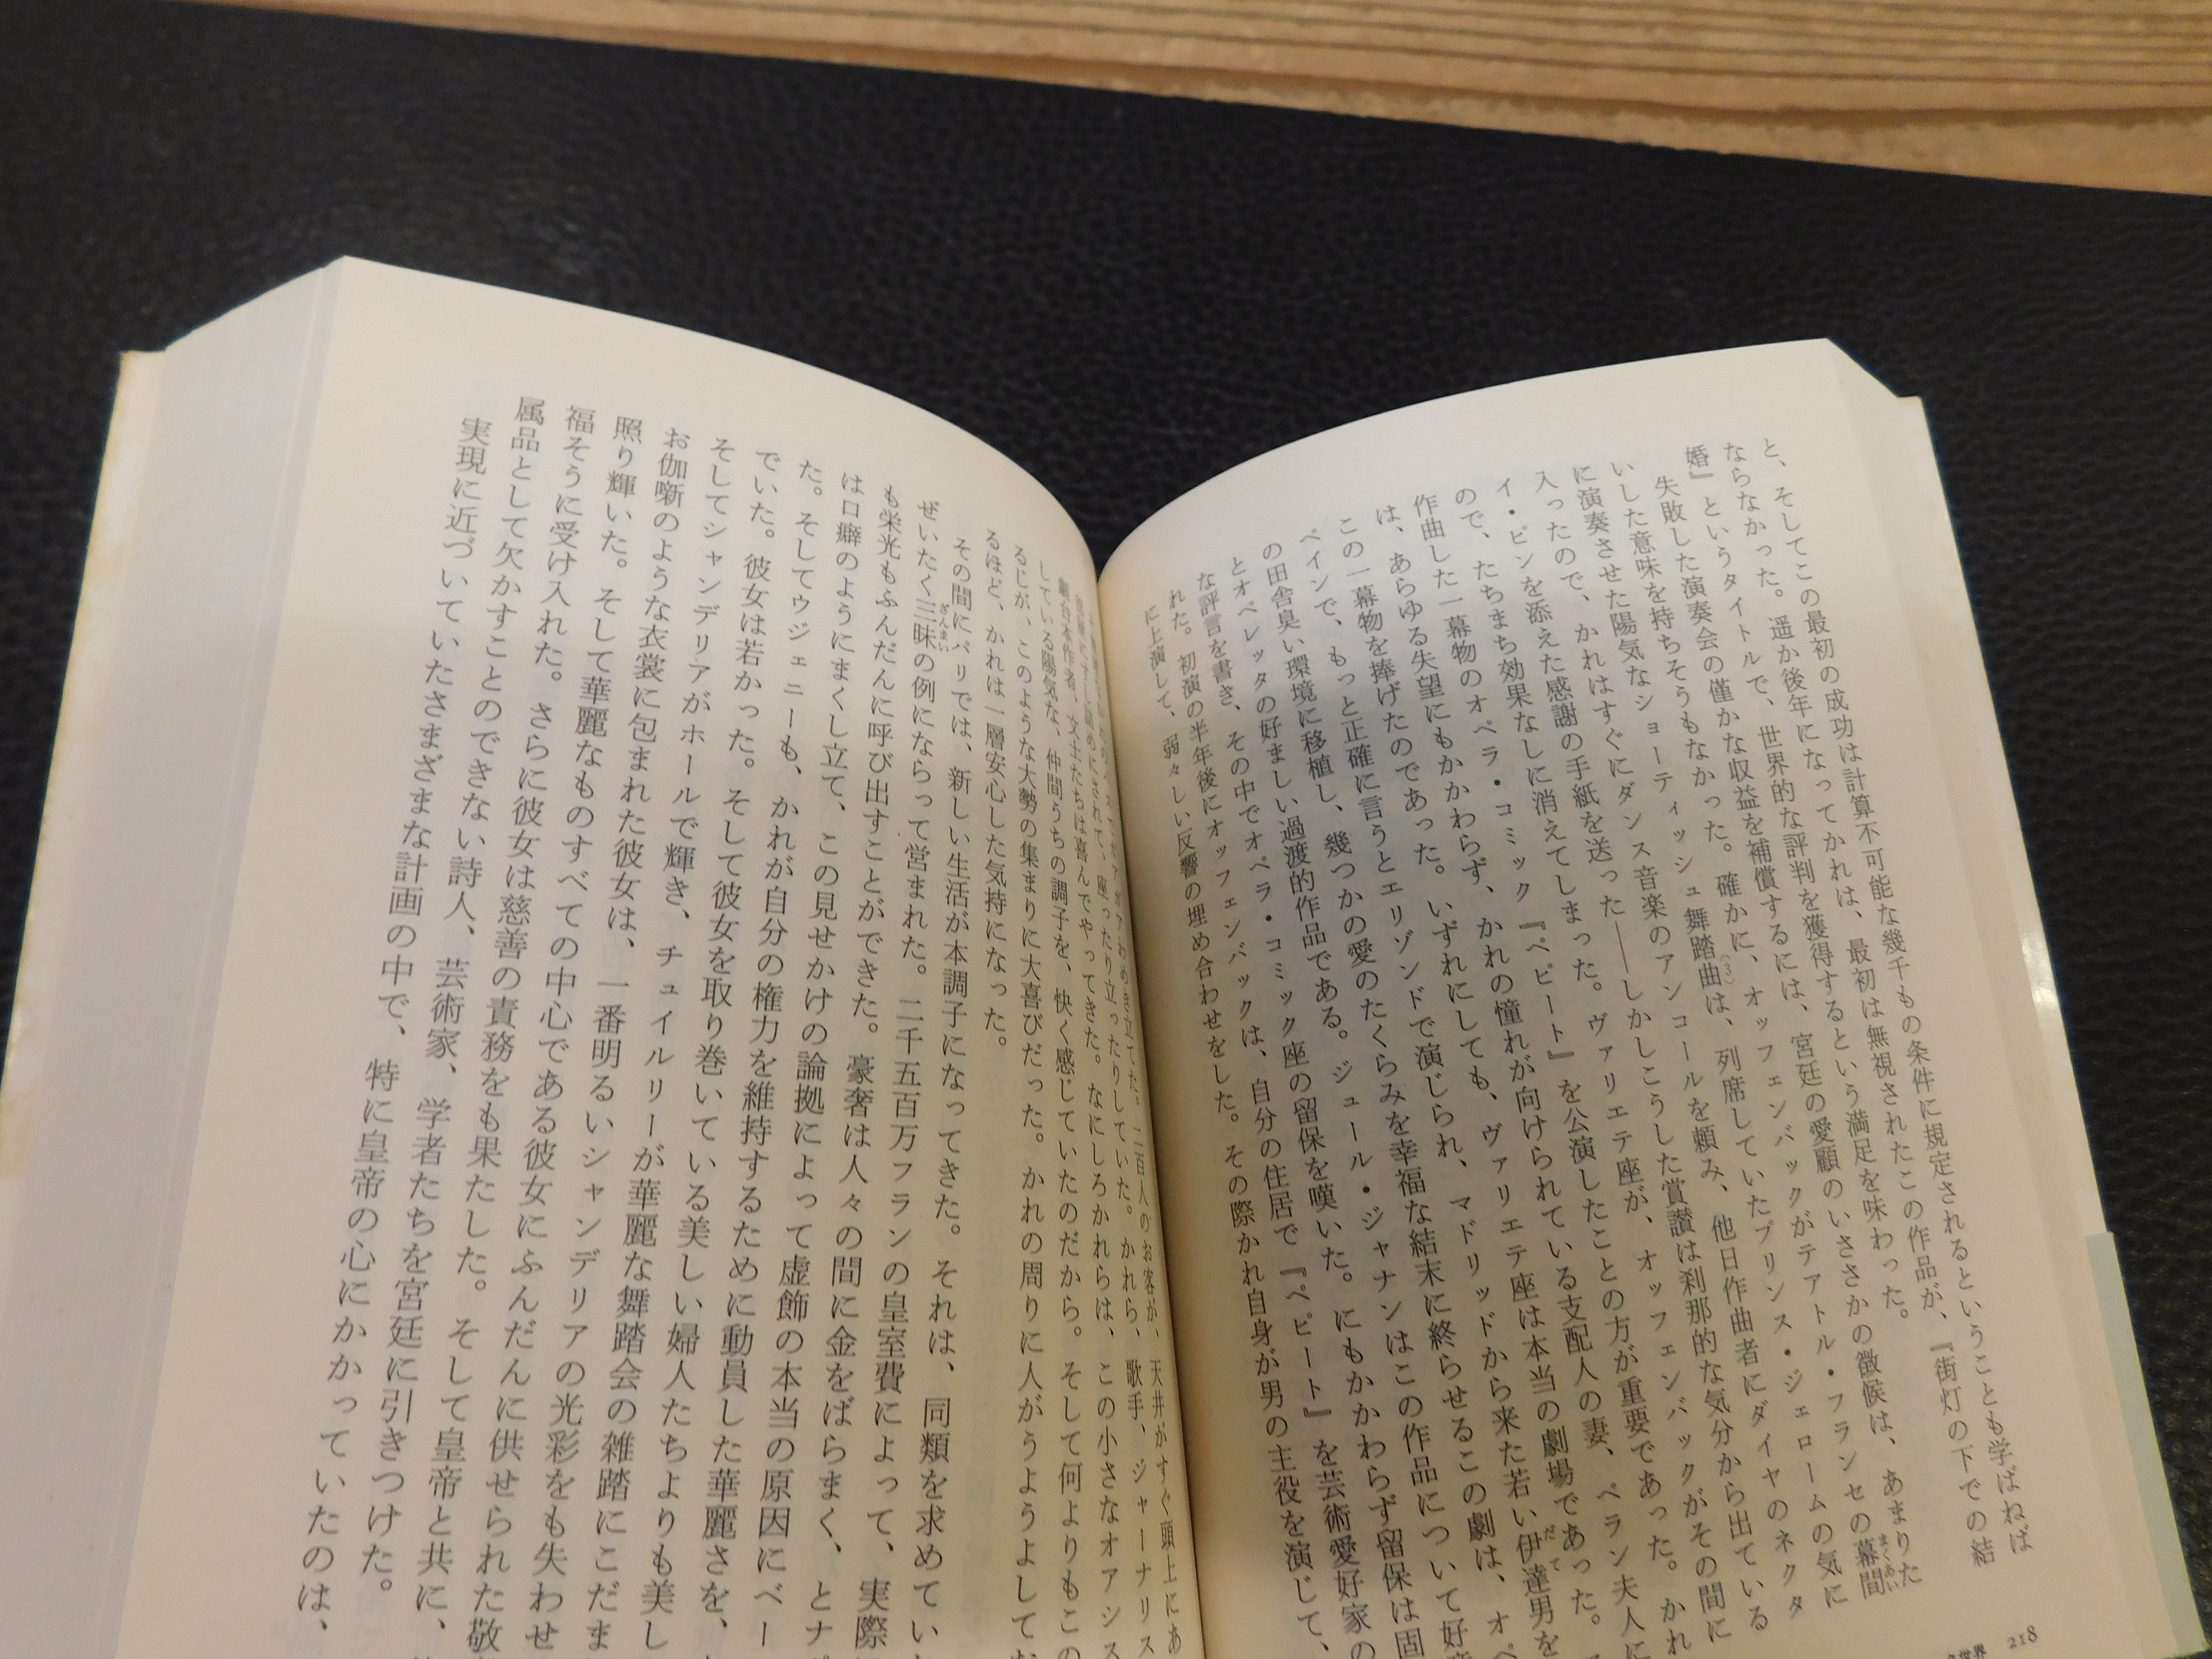 と、そしてこの最初の成功は計算不可能な幾千もの条件に規定されるということも学ばねば
ならなかった。遥か後年になってかれは、最初は無視されたこの作品が、『街灯の下での結
婚』というタイトルで、世界的な評判を獲得するという満足を味わった。
失敗した演奏会の僅かな収益を補償するには、宮廷の愛顧のいささかの徴候は、あまりた
いした意味を持ちそうもなかった。確かに、オッフェンバックがテアトル・フランセの幕間
に演奏させた陽気なショーティッシュ舞踏曲(3)は、列席していたプリンス・ジェロームの気に
入ったので、かれはすぐにダンス音楽のアンコールを頼み、他日作曲者にダイヤのネクタ
イ・ピンを添えた感謝の手紙を送った――しかしこうした賞讃は刹那的な気分から出ている
ので、たちまち効果なしに消えてしまった。ヴァリエテ座が、オッフェンバックがその間に
作曲した一幕物のオペラ・コミック『ペピート』を公演したことの方が重要であった。かれ
は、あらゆる失望にもかかわらず、かれの憧れが向けられている支配人の妻、ペラン夫人に
この一幕物を捧げたのであった。いずれにしても、ヴァリエテ座は本当の劇場であった。
ペインで、もっと正確に言うとエリゾンドで演じられ、マドリッドから来た若い伊達男を
の田舎臭い環境に移植し、幾つかの愛のたくらみを幸福な結末に終らせるこの劇は、オペ
とオペレッタの好ましい過渡的作品である。ジュール・ジャナンはこの作品について好意
な評言を書き、その中でオペラ・コミック座の留保を嘆いた。にもかかわらず留保は固
れた。初演の半年後にオッフェンバックは、自分の住居で『ペピート』を芸術愛好家の
に上演して、弱々しい反響の埋め合わせをした。その際かれ自身が男の主役を演じて、
218
二百人のお客が、天井がすぐ頭上にあ
座ったり立ったりしていた。かれら、歌手、ジャーナリス
劇台本作者、文士たちは喜んでやってきた。なにしろかれらは、この小さなオアシス
している陽気な、仲間うちの調子を、快く感じていたのだから。そして何よりもこの
るじが、このような大勢の集まりに大喜びだった。かれの周りに人がうようよしてお
るほど、かれは一層安心した気持になった。
その間にパリでは、新しい生活が本調子になってきた。それは、同類を求めてい
ぜいたく三昧の例にならって営まれた。二千五百万フランの皇室費によって、実際
も栄光もふんだんに呼び出すことができた。豪奢は人々の間に金をばらまく、とナ
は口癖のようにまくし立て、この見せかけの論拠によって虚飾の本当の原因にベー
た。そしてウジェニーも、かれが自分の権力を維持するために動員した華麗さを、
でいた。彼女は若かった。そして彼女を取り巻いている美しい婦人たちよりも美し
そしてシャンデリアがホールで輝き、チュイルリーが華麗な舞踏会の雑踏にこだま
お伽噺のような衣裳に包まれた彼女は、一番明るいシャンデリアの光彩をも失わせ
照り輝いた。そして華麗なものすべての中心である彼女にふんだんに供せられた敬
福そうに受け入れた。さらに彼女は慈善の責務をも果たした。そして皇帝と共に、
属品として欠かすことのできない詩人、芸術家、学者たちを宮廷に引きつけた。
実現に近づいていたさまざまな計画の中で、特に皇帝の心にかかっていたのは、